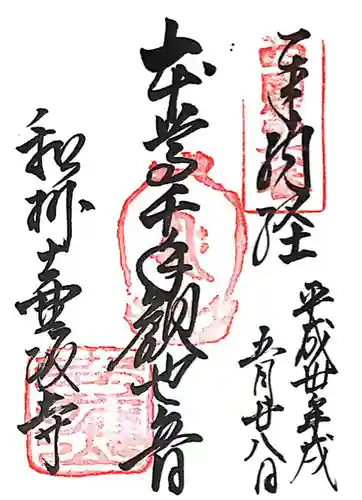 奉納経
平成卅年戌
五月廿八日
本尊千手観世音
和州壷阪寺